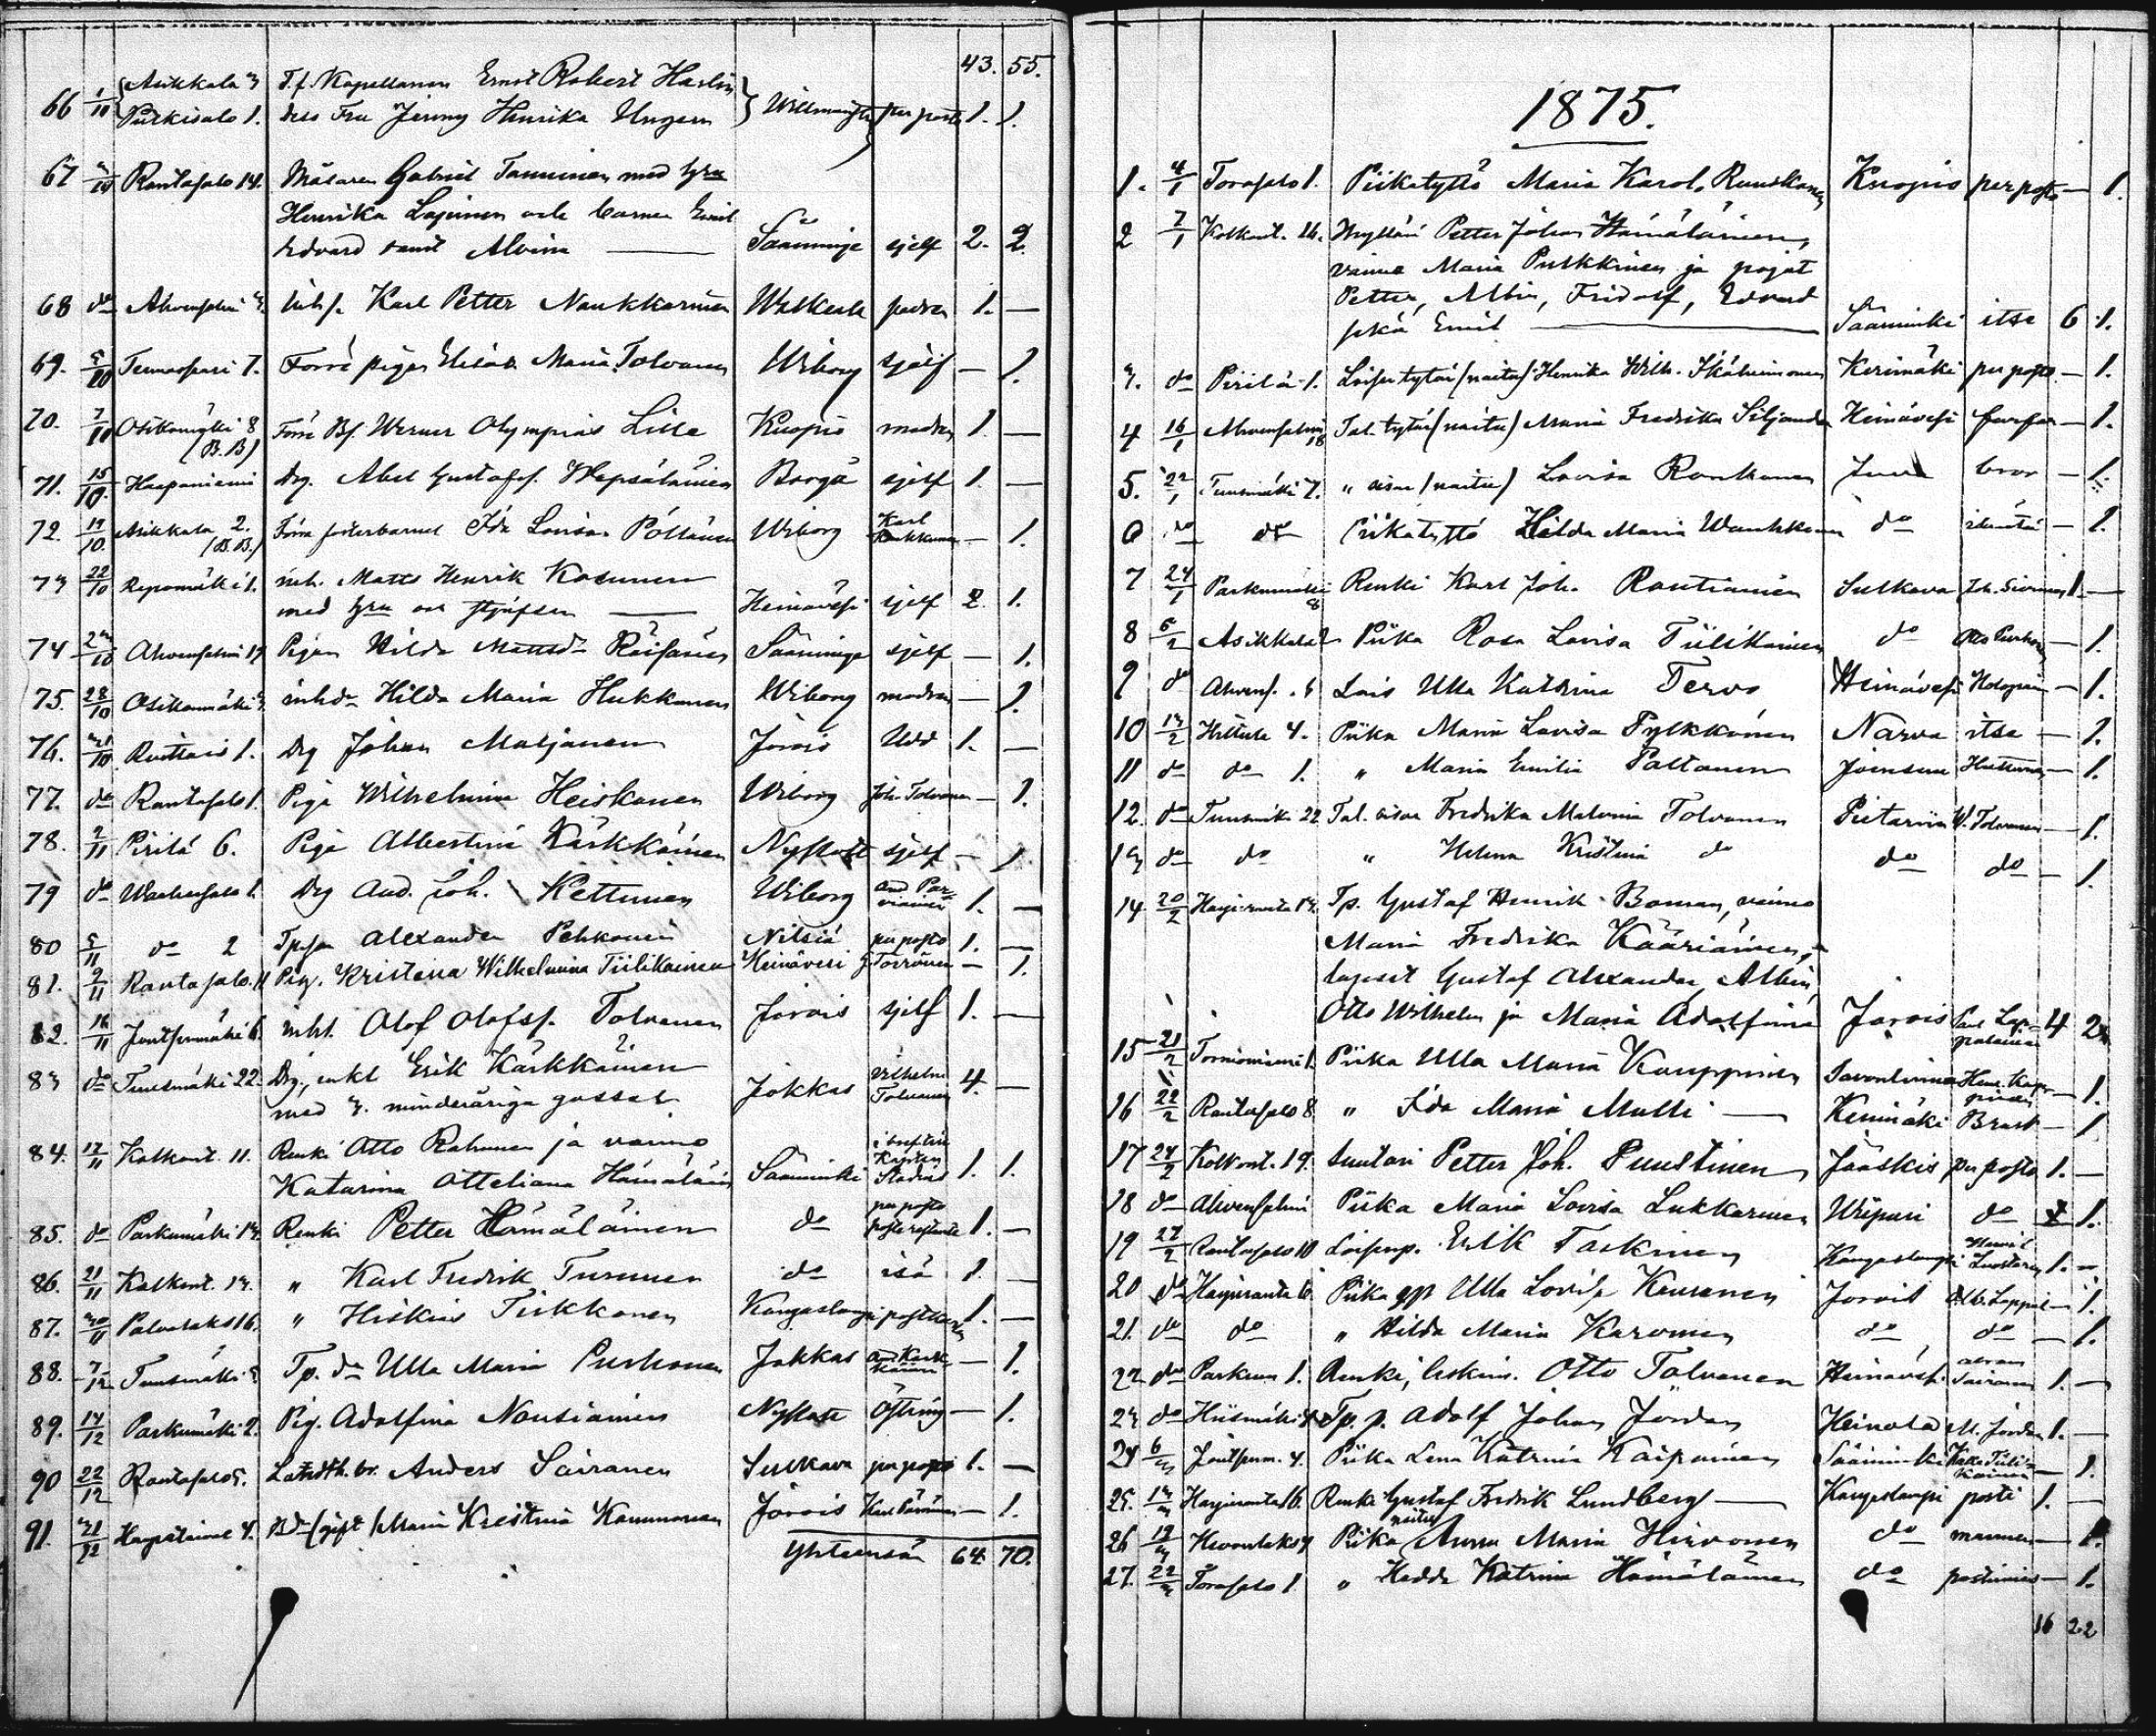 43. 55.
66 1/10 Asikkala 3 T.f. Kapellanen Ernst Robert Harlin
Purkisalo 1. dess Fru Jenny Henrika Ungern Willmanstr. per posto 1. 1.
67 3/10 Rantasalo 14. Målaren Gabriel Tanninen med hru
Henrika Lajunen och barnen Emil
Edvard samt Alvina — Sääminge sjelf 2. 2.
68 do Ahvensalmi 3. inh.s. Karl Petter Naukkarinen Walkeala 1. —
69. 5/10 7. Förre pigan Elisab. Maria Tolvanen Wiborg sjelf — 1.
70. 7/10 Osikonmäki 8 Förre Bs. Werner Olympias Lille Kuopio modren 1. —
(B.B)
71. 15/10. Haapaniemi Drg. Abel Gustafss. Hepsäläinen Borgå sjelf 1. —
72. 19/10. Asikkala 2. Förra fosterbarnet Ida Lovisa Pöllänen Wiborg Karl — 1.
(B.B.)
73 22/10 Repomäki 1. inh. Matts Henrik Kosunen
med hru och — Heinävesi sjelf 2. 1.
74 23/10 Ahvensalmi 19 Pigan Hilda Mattsdr Räisänen Sääminge sjelf — 1.
75. 28/10 Osikonmäki 3. inhdr Hilda Maria Hukkanen Wiborg modren — 1.
76. 31/10 1. Drg Johan Matjanen Jorois Udd 1. —
77. do Rantasalo 1. Piga Wilhelmina Heiskanen Wiborg Joh. Tolvanen — 1.
78. 2/11 Pirilä 6. Piga Albertina Kärkkäinen Nyslott sjelf — 1
79 do 1. Drg And. Joh. Kettunen Wiborg And Par-
viainen 1. —
80 5/11 do 2 Alexander Pehkonen Nilsiä per posto 1. —
81. 9/11 Rantasalo 11 Pig. Kristina Wilhelmina Tiilikainen Heinävesi J. Torvinen — 1.
82. 16/11 6. inh.s. Olof Olofss. Tolvanen Jorois sjelf 1. —
83 do Tuusmäki 22. Drg., enkl Erik Kärkkäinen
med 3. minderåriga gossar Jokkas Vilhelm
Tolvanen 4. —
84. 17/11 Kolkont. 11. Renki Otto Rahunen ja vaimo
Katarina Otteliana Hämäläin Sääminki 1. 1.
85. do Parkumäki 13. Renki Petter Hämäläinen do per posto
poste restante 1. —
86. 21/11 Kolkont. 13. " Karl Fredrik Turunen do isä 1. —
87. 30/11 16. " Hiskias Tiikkanen Kangaslampi 1. —
88. 7/12 Tuusmäki 3 Tp. dr Ulla Maria Purhonen Jokkas And Kärk-
käinen — 1.
89. 14/12 Parkumäki 2. Pig. Adolfina Nousiainen Nyslott Öftring — 1.
90 22/12 Rantasalo 5. br. Anders Sairanen Sulkava per posto 1. —
91. 31/12 4. Bdr (gift) Maria Kristina Kammonen Jorois — 1.
Yhteensä 64. 70.
1875.
1. 4/1 Torasalo 1. Piikatyttö Maria Karol. Ruuskanen Kuopio per posto — 1.
2 7/1 Kolkont. 26. Petter Johan Hämäläinen,
vaimo Maria Pulkkinen ja pojat
Petter, Albin, Fridolf, Edvard
sekä Emil — Sääminki itse 6 1.
3. do Pirilä 1. Loisen tytär (naitu) Henrika Wilh. Ikäheimonen Kerimäki per posto — 1.
4 16/1 Ahvensalmi 18 Tal. tytär (naitu) Maria Fredrika Siljander Heinävesi farfar — 1.
5. 22/1 Tuusmäki 7. " sisar (naitu) Lovisa Ronkanen bror — 1.
6 do do Piikatyttö Hilda Maria Wauhkonen do — 1.
7 24/1 Parkumäki 8 Renki Karl Joh. Rautiainen Sulkava 1. —
8 5/2 Asikkala 2 Piika Rosa Lovisa Tiilikainen do Otto Purhonen — 1.
9 do Ahvens. Lois Ulla Katrina Tervo Heinävesi — 1.
10 13/2 4. Piika Maria Lovisa Pylkkönen Narva itse — 1.
11 do do 1. " Maria Emilia Paltanen Joensuu — 1.
12. do Tuusmäki 22 Tal. sisar Fredrika Malvina Tolvanen Pietarin W. Tolvanen — 1.
13 do do " Helena Kristina do do do — 1.
14. 20/2 Harjuranta 13. Tp. Gustaf Henrik Boman, vaimo
Maria Fredrika Kääriäinen,
lapset Gustaf Alexander, Albin,
Otto Wilhelm ja Maria Adolfina Jorois 4 2
15 21/2 Tornioniemi 1. Piika Ulla Maria Kauppinen Savonlinna — 1.
16 22/2 Rantasalo 8 " Ida Maria Malli — Kerimäki — 1
17 24/2 Kolkont. 19. Suutari Petter Joh. Puustinen Jääskis per posto 1. —
18 do Ahvensalmi Piika Maria Lovisa Lukkarinen Wiipuri do 1.
19 27/2 Rantasalo 10 Loisenp. Erik Taskinen Kangaslampi 1. —
20 do Harjuranta 6. Piika Ulla Lovisa Keuranen Jorois — 1.
21. do do " Hilda Maria Karvonen do do — 1.
22 do Parkum 1. Renki, leskim. Otto Tolvanen Heinäves. Sairanen 1. —
23 do Hiismäki Tp. p. Adolf Johan Jordan Heinola M. Jordan 1. —
24 6/3 4. Piika Lena Katrina Kaipainen Sääminki Tiili-
kainen — 1.
25. 13/3 Harjuranta 16. Renki Gustaf Fredrik Lundberg — Kangaslampi posti 1. —
naitu
26 19/3 Piika Anna Maria Hirvonen do — 1.
27. 22/3 Torasalo 1. " Hedda Katrina Hämäläinen do postimies — 1.
16 22